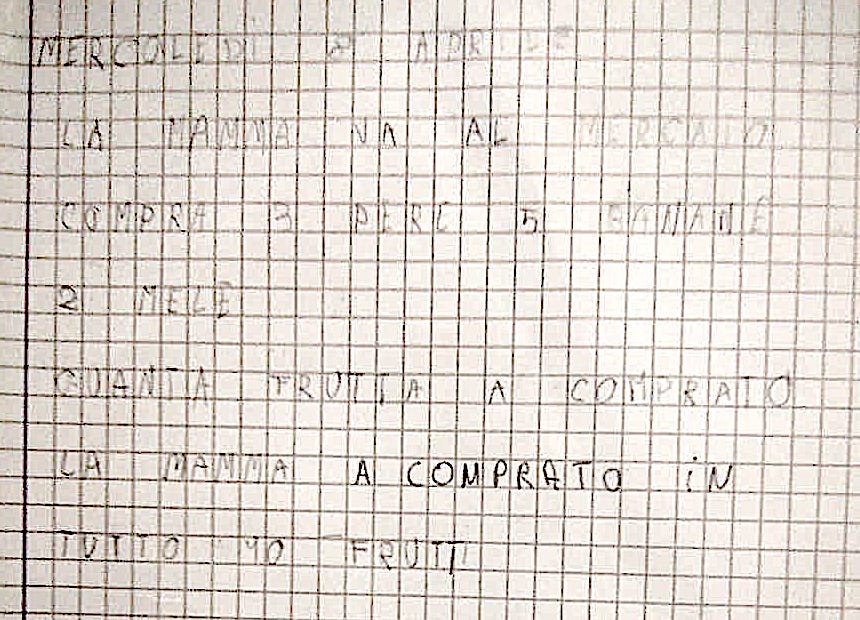 MERCOLEDI APRILE
LA MAMMA VA AL MERCATO
COMPRA 3 PERE 5 BANANE
2 MELE
QUANTA FRUTTA A COMPRATO
LA MAMMA A COMPRATO iN
TUTTO 10 FRUTTI